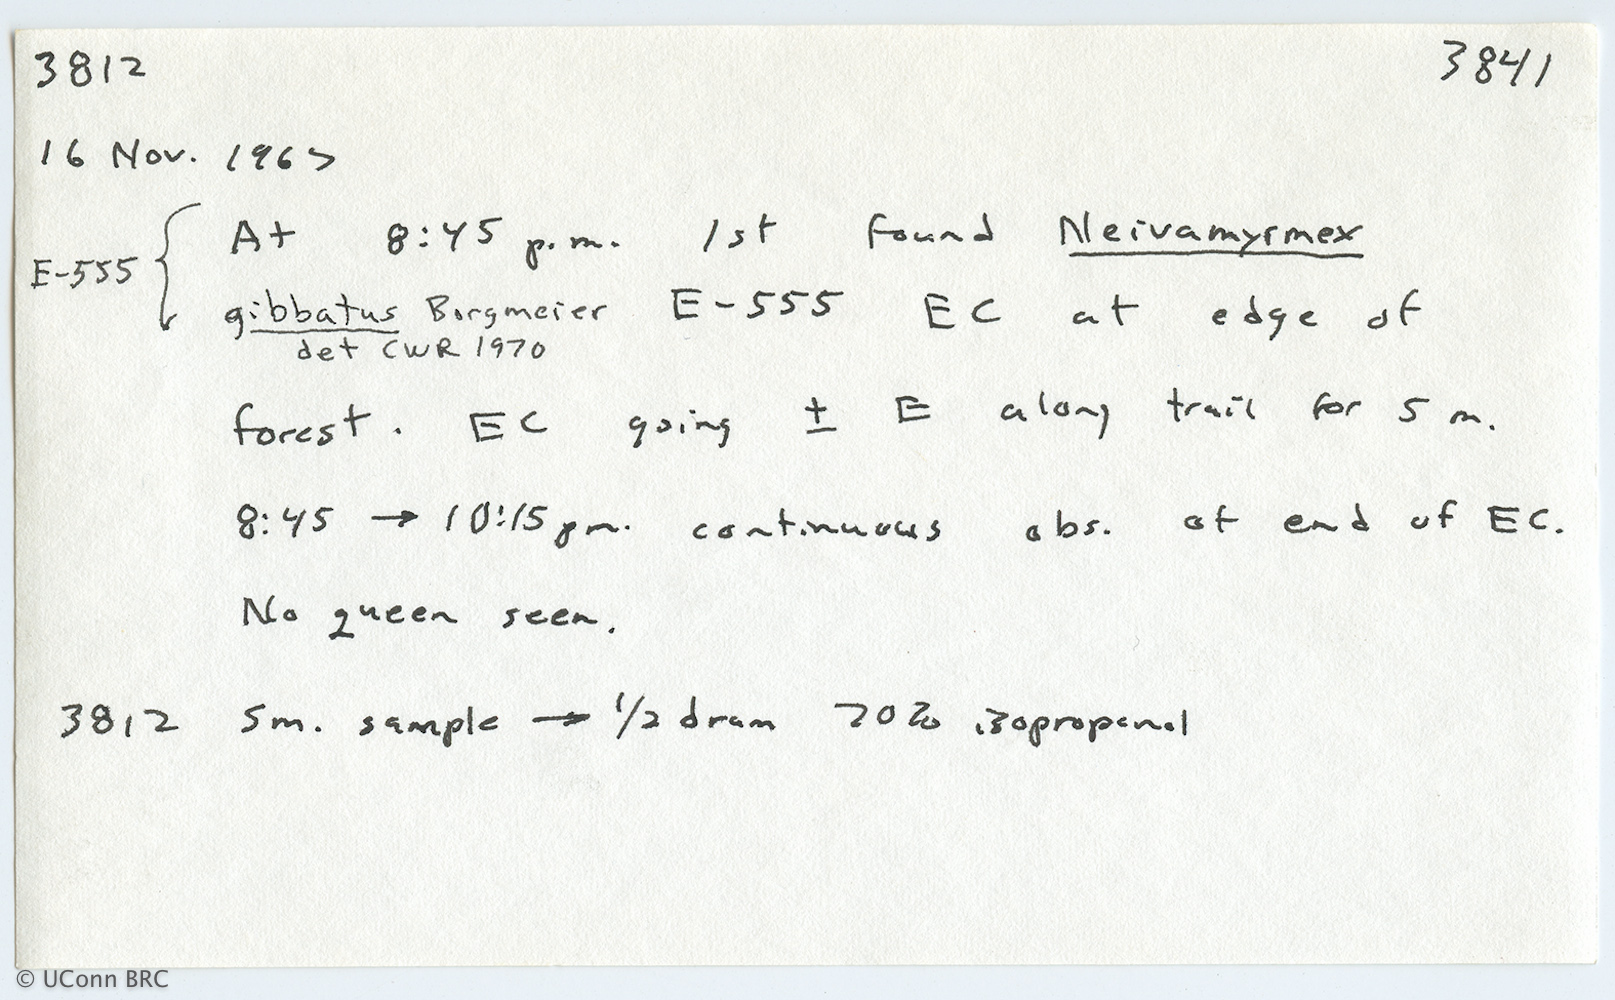 3812 3841
16 Nov. 1967
E-555 { At 8:45 p.m. 1st found Neivamyrmex
gibbatus Borgmeier E-555 EC at edge of
det CWR 1970
forest. EC going ± E along trail for 5 m.
8:45 → 10:15 pm. continuous obs. at end of EC.
No queen seen.
3812 Sm. sample → 1/2 dram 70% isopropanol
© UConn BRC